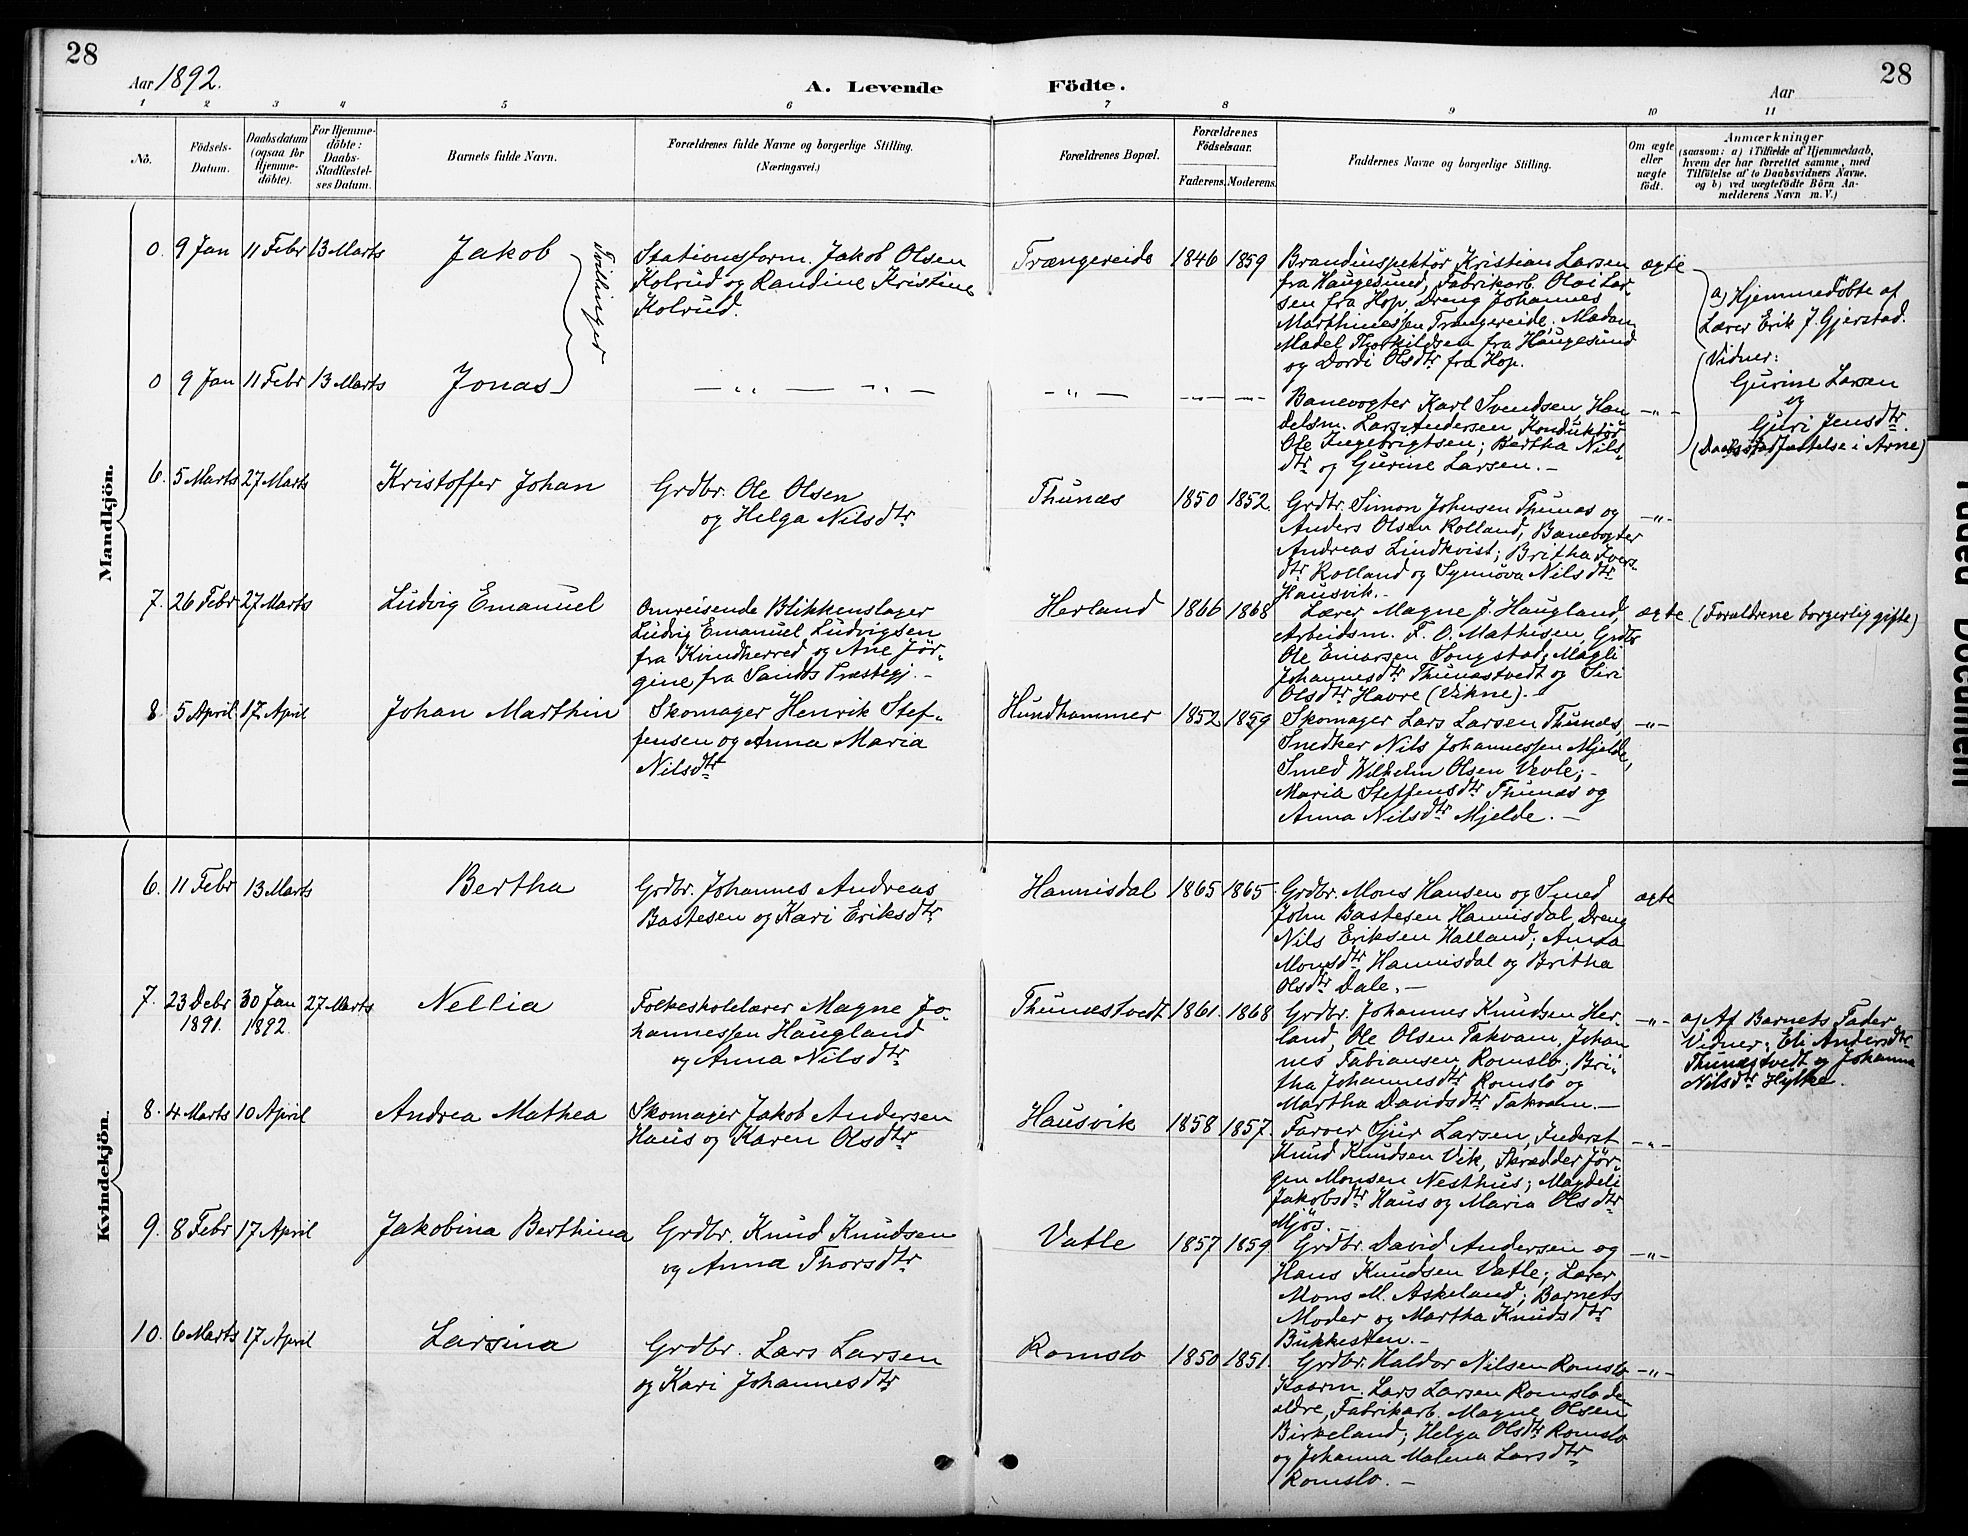 28
Aar 1892.
A. Levende Födte.
Aar
28
1 2 3 4 5 6 7 8 9 10 11
No.
Födsels-
Datum.
Daabsdatum
(ogsaa for
Hjemme-
döbte).
For Hjemme-
döbte:
Daabs-
Stadfæstel-
ses Datum.
Barnets fulde Navn.
Forældrenes fulde Navne og borgerlige Stilling.
(Næringsvei.)
Forældrenes Bopæl.
Forældrenes
Födselsaar.
Faderens. Moderens.
Faddernes Navne og borgerlige Stilling.
Om ægte
eller
uægte
födt.
Anmærkninger
(saasom: a) i Tilfælde af Hjemmedaab,
hvem der har forrettet samme, med
Tilföielse af to Daabsvidners Navne,
og b) ved uægtefödte Börn An-
melderens Navn m. V.)
Mandkjön.
0. 9 Jan 11 Febr 13 Marts
Jakob
Tvillinger
Stationsform. Jakob Olsen
Kolrud og Randine Kristine
Kolrud.
Trængereide 1846 1859
Brandinspektör Kristian Larsen
fra Haugesund, Fabrikarb. Olai Lar-
sen fra Hop, Dreng Johannes
Marthinessen Trængereide; Madam
Madel Thorkildsen fra Haugesund
og Dordi Olsdtr fra Hop.
ægte
a) Hjemmedöbte af
Lærer Erik J. Gjerstad.
Vidner:
Gurine Larsen
og
Guri Jensdtr.
(Daabsstadfæstelse i Arne)
0 9 Jan 11 Febr 13 Marts
Jonas
— „ — „ —
— „ —
—„— —„—
Banevogter Karl Svendsen, Han-
delsm. Lars Andersen, Konduktör
Ole Ingebrigtsen; Bertha Nils-
dtr og Gurine Larsen. —
—„—
6. 5 Marts 27 Marts
Kristoffer Johan
Grdbr. Ole Olsen
og Helga Nilsdtr
Thunæs 1850 1852.
Grdbr. Simon Johnsen Thunæs og
Anders Olsen Rolland, Banevogter
Andreas Lindkvist; Britha Ivers-
dtr Rolland og Synnöva Nilsdtr
Hausvik. —
—„—
7. 26 Febr 27 Marts
Ludvig Emanuel
Omreisende Blikkenslager
Ludvig Emanuel Ludvigsen
fra Kvindherred og Ane Jör-
gine fra Sands Præstegj. —
Herland 1866 1868
Lærer Magne J. Haugland,
Arbeidsm. F. O. Mathisen, Grdbr
Ole Einarsen Songstad; Magli
Johannesdtr Thunæstvedt og Siri
Olsdtr Havre (Vikne). —
ægte
(Forældrene borgerlig gifte)
8. 5 April 17 April
Johan Marthin
Skomager Henrik Stef-
fensen og Anna Maria
Nilsdtr
Hundhammer 1852 1859
Skomager Lars Larsen Thunæs,
Snedker Nils Johannessen Mjelde,
Smed Wilhelm Olsen Vevle; —
Maria Steffensdtr Thunæs og
Anna Nilsdtr Mjelde. —
—„—
Kvindekjön.
6. 11 Febr 13 Marts
Bertha
Grdbr. Johannes Andreas
Bastesen og Kari Eriksdtr
Hannisdal 1865 1865.
Grdbr. Mons Hansen og Smed
John Bastesen Hannisdal, Dreng
Nils Eriksen Halland; Anna
Monsdtr Hannisdal og Britha
Olsdtr Dale. —
ægte
7. 23 Debr 30 Jan 27 Marts
1891. 1892.
Nellia
Folkeskolelærer Magne Jo-
hannessen Haugland
og Anna Nilsdtr
Thunæstvedt 1861. 1868
Grdbr. Johannes Knudsen Her-
land, Ole Olsen Takvam, Johan-
nes Fabiansen Romslo; Bri-
tha Johannesdtr Romslo og
Martha Davidsdtr Takvam. —
—„—
a) Af Barnets Fader
Vidner: Eli Andersdtr
Thunæstvedt og Johanna
Nilsdtr Hylke.
8. 4 Marts 10 April
Andrea Mathea
Skomager Jakob Andersen
Haus og Karen Olsdtr
Hausvik 1858 1857.
Farver Sjur Larsen, Inderst
Knud Knudsen Vik, Skrædder Jör-
gen Monsen Nesthus; Magdeli
Jakobsdtr Haus og Maria Olsdtr
Mjös. —
—„—
9. 8 Febr 17 April
Jakobina Berthina
Grdbr. Knud Knudsen
og Anna Thorsdtr
Vatle 1857 1859
Grdbr. David Andersen og
Hans Knudsen Vatle; Lærer
Mons M. Askeland; Barnets
Moder og Martha Knudsdtr
Bukkesten. —
—„—
10. 6 Marts 17 April
Larsina
Grdbr. Lars Larsen
og Kari Johannesdtr
Romslo 1850 1851.
Grdbr. Haldor Nilsen Romslo
Kaarm. Lars Larsen Romslo de
ældre, Fabrikarb. Magne Olsen
Birkeland; Helga Olsdtr Romslo
og Johanna Malena Larsdtr
Romslo. —
—„—